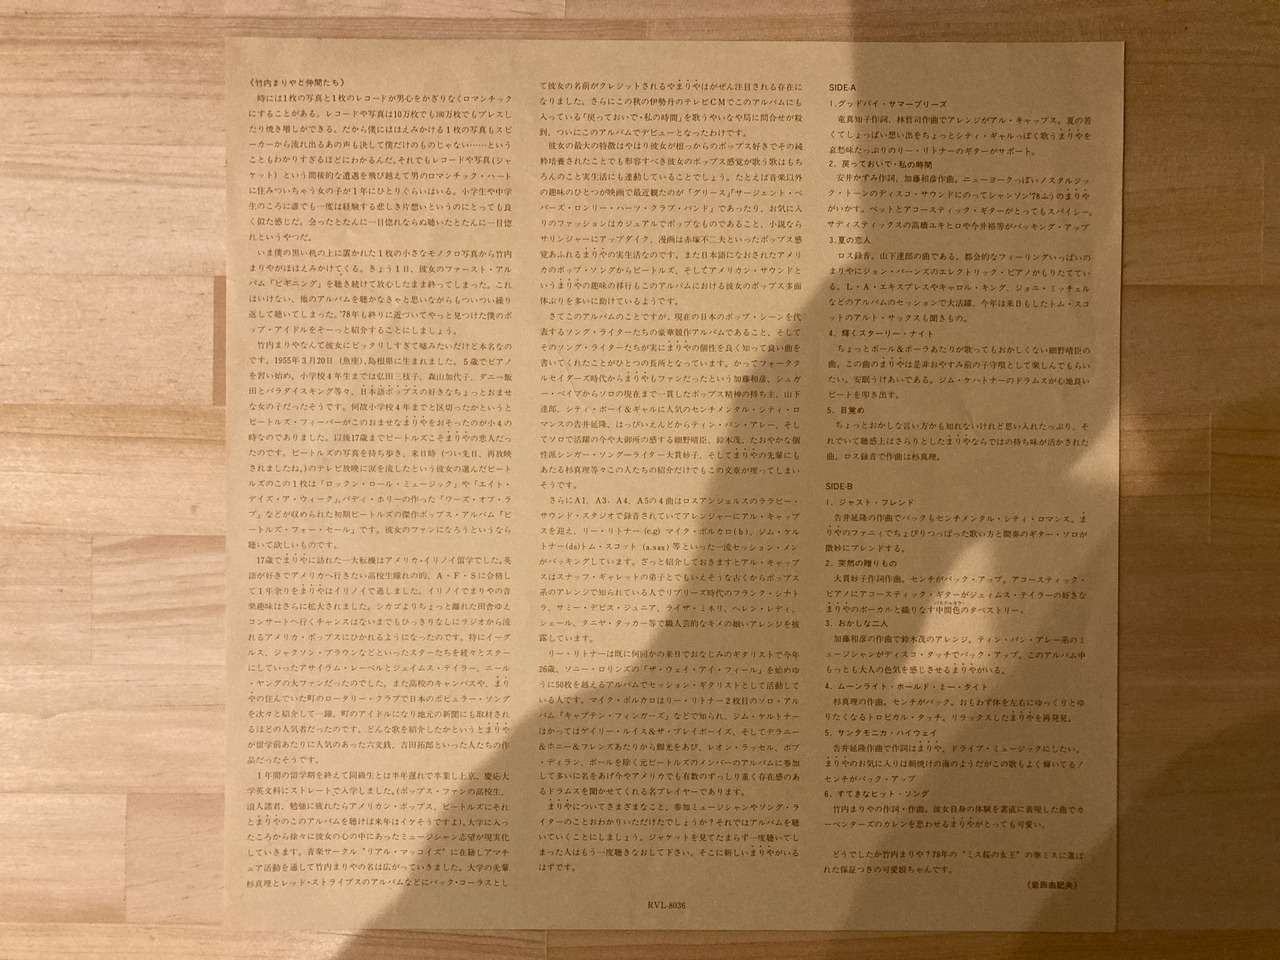 《竹内まりやと仲間たち》
時には1枚の写真と1枚のレコードが男心をかぎりなくロマンチック
にすることがある。レコードや写真は10万枚でも100万枚でもプレスし
たり焼き増しができる。だから僕にほほえみかける1枚の写真もスピ
ーカーから流れ出るあの声も決して僕だけのものじゃない……という
こともわかりすぎるほどにわかるんだ。それでもレコードや写真(ジャ
ケット)という間接的な遭遇を飛び越えて男のロマンチック・ハート
に住みついちゃう女の子が1年にひとりぐらいはいる。小学生や中学
生のころに誰でも一度は経験する悲しき片想いというのにとっても良
く似た感じだ。会ったとたんに一目惚れならぬ聴いたとたんに一目惚
れというやつだ。
いま僕の黒い机の上に置かれた1枚の小さなモノクロ写真から竹内
まりやがほほえみかけてくる。きょう1日、彼女のファースト・アル
バム「ビギニング」を聴き続けて放心したまま終ってしまった。これ
はいけない、他のアルバムを聴かなきゃと思いながらもついつい繰り
返して聴いてしまった。'78年も終りに近づいてやっと見つけた僕のポ
ップ・アイドルをそーっと紹介することにしましょう。
竹内まりやなんて彼女にピッタリしすぎて嘘みたいだけど本名なの
です。1955年3月20日(魚座)、島根県に生まれました。5歳でピアノ
を習い始め、小学校4年生までは弘田三枝子、森山加代子、ダニー飯
田とパラダイスキング等々、日本語ポップスの好きなちょっとおませ
な女の子だったそうです。何故小学校4年までと区切ったかというと
ビートルズ・フィーバーがこのおませなまりやをおそったのが小4の
時なのでありました。以後17歳までビートルズこそまりやの恋人だっ
たのです。ビートルズの写真を持ち歩き、来日時(つい先日、再放映
されましたね。)のテレビ放映に涙を流したという彼女の選んだビート
ルズのこの1枚は「ロックン・ロール・ミュージック」や「エイト・
デイズ・ア・ウィーク」、バディ・ホリーの作った「ワーズ・オブ・ラ
ブ」などが収められた初期ビートルズの傑作ポップス・アルバム「ビ
ートルズ・フォー・セール」です。彼女のファンになろうというなら
聴いて欲しいものです。
17歳でまりやに訪れた一大転機はアメリカ・イリノイ留学でした。英
語が好きでアメリカへ行きたい高校生憧れの的、A・F・Sに合格し
て1年余りをまりやはイリノイで過しました。イリノイでまりやの音
楽趣味はさらに拡大されました。シカゴよりちょっと離れた田舎ゆえ
コンサートへ行くチャンスはないまでもひっきりなしにラジオから流
れるアメリカ・ポップスにひかれるようになったのです。特にイーグ
ルス、ジャクソン・ブラウンなどといったスターたちを続々とスター
にしていったアサイラム・レーベルとジェイムス・テイラー、ニール
・ヤングの大ファンだったのでした。また高校のキャンパスや、まり
やの住んでいた町のロータリー・クラブで日本のポピュラー・ソング
を次々と紹介して一躍、町のアイドルになり地元の新聞にも取材され
るほどの人気者だったのです。どんな歌を紹介したかというとまりや
が留学前あたりに人気のあった六文銭、吉田拓郎といった人たちの作
品だったそうです。
1年間の留学期を終えて同級生とは半年遅れで卒業し上京、慶応大
学英文科にストレートで入学しました。(ポップス・ファンの高校生、
浪人諸君、勉強に疲れたらアメリカン・ポップス、ビートルズにそれ
とまりやのこのアルバムを聴けば来年はイケそうですよ)。大学に入っ
たころから徐々に彼女の心の中にあったミュージシャン志望が現実化
していきます。音楽サークル“リアル・マッコイズ”に在籍しアマチ
ュア活動を通して竹内まりやの名は広がっていきました。大学の先輩
杉真理とレッド・ストライプスのアルバムなどにバック・コーラスとし
て彼女の名前がクレジットされるやまりやはがぜん注目される存在に
なりました。さらにこの秋の伊勢丹のテレビCMでこのアルバムにも
入っている「戻っておいで・私の時間」を歌うやいなや局に問合せが殺
到、ついにこのアルバムでデビューとなったわけです。
彼女の最大の特徴はやはり彼女が根っからのポップス好きでその純
粋培養されたことでも形容すべき彼女のポップス感覚が歌う歌はもち
ろんのこと実生活にも連動していることでしょう。たとえば音楽以外
の趣味のひとつが映画で最近観たのが「グリース」「サージェント・ペ
パーズ・ロンリー・ハーツ・クラブ・バンド」であったり、お気に入
りのファッションはカジュアルでポップなものであること、小説なら
サリンジャーにアップダイク、漫画は赤塚不二夫といったポップス感
覚あふれるまりやの実生活なのです。また日本語になおされたアメリ
カのポップ・ソングからビートルズ、そしてアメリカン・サウンドと
いうまりやの趣味の移行もこのアルバムにおける彼女のポップス多面
体ぶりを多いに助けているようです。
さてこのアルバムのことですが、現在の日本のポップ・シーンを代
表するソング・ライターたちの豪華競作アルバムであること、そして
そのソング・ライターたちが実にまりやの個性を良く知って良い曲を
書いてくれたことがひとつの長所となっています。かってフォークク
ルセイダーズ時代からまりやもファンだったという加藤和彦、シュガ
ー・ベイブからソロの現在まで一貫したポップス精神の持ち主、山下
達郎、シティ・ボーイ&ギャルに人気のセンチメンタル・シティ・ロ
マンスの告井延隆、はっぴいえんどからティン・パン・アレー、そし
てソロで活躍の今や大御所の感する細野晴臣、鈴木茂、たおやかな個
性派シンガー・ソングーライター大貫妙子、そしてまりやの先輩にも
あたる杉真理等々この人たちの紹介だけでもこの文章が埋ってしまい
そうです。
さらにA1、A3、A4、A5の4曲はロスアンジェルスのララビー・
サウンド・スタジオで録音されていてアレンジャーにアル・キャップ
スを迎え、リー・リトナー(e.g)マイク・ポルカロ(b)、ジム・ケル
トナー(ds)トム・スコット(a.sax)等といった一流セッション・メン
がバッキングしています。ざっと紹介しておきますとアル・キャップ
スはスナッフ・ギャレットの弟子とでもいえそうな古くからポップス
系のアレンジで知られている人でリプリーズ時代のフランク・シナト
ラ、サミー・デビス・ジュニア、ライザ・ミネリ、ヘレン・レディ、
シェール、タニヤ・タッカー等で職人芸的なキメの細いアレンジを披
露しています。
リー・リトナーは既に何回かの来日でおなじみのギタリストで今年
26歳、ソニー・ロリンズの「ザ・ウェイ・アイ・フィール」を始めゆ
うに50枚を越えるアルバムでセッション・ギタリストとして活動して
いる人です。マイク・ポルカロはリー・リトナー2枚目のソロ・アル
バム「キャプテン・フィンガーズ」などで知られ、ジム・ケルトナー
はかってはゲイリー・ルイス&ザ・プレイボーイズ、そしてデラニー
&ボニー&フレンズあたりから脚光をあび、レオン・ラッセル、ボブ
・ディラン、ポールを除く元ビートルズのメンバーのアルバムに参加
して多いに名をあげ今やアメリカでも有数のずっしり重く存在感のあ
るドラムスを聞かせてくれる名プレイヤーであります。
まりやについてさまざまなこと、参加ミュージシャンやソング・ラ
イターのことおわかりいただけたでしょうか?それではアルバムを聴
いていくことにしましょう。ジャケットを見てたまらず一度聴いてし
まった人はもう一度聴きなおして下さい。そこに新しいまりやがいる
はずです。
SIDE-A
1.グッドバイ・サマーブリーズ
竜真知子作詞、林哲司作曲でアレンジがアル・キャップス。夏の若
くてしょっぱい想い出をちょっとシティ・ギャルっぽく歌うまりやを
哀愁味たっぷりのリー・リトナーのギターがサポート。
2. 戻っておいで・私の時間
安井かずみ作詞、加藤和彦作曲。ニューヨークっぽいノスタルジッ
ク・トーンのディスコ・サウンドにのってシャンソン'78ふうのまりや
がいかす。ペットとアコースティック・ギターがとってもスパイシー。
サディスティックスの高橋ユキヒロや今井裕等がバッキング・アップ
3.夏の恋人
ロス録音。山下達郎の曲である。都会的なフィーリングいっぱいの
まりやにジョン・バーンズのエレクトリック・ピアノがもりたててい
る。L・A・エキスプレスやキャロル・キング、ジョニ・ミッチェル
などのアルバムのセッションで大活躍、今年は来日もしたトム・スコ
ットのアルト・サックスも聞きもの。
4. 輝くスターリー・ナイト
ちょっとポール&ポーラあたりが歌ってもおかしくない細野晴臣の
曲。この曲のまりやは是非おやすみ前の子守唄として楽しんでもらい
たい。安眠うけあいである。ジム・ケルトナーのドラムスが心地良い
ビートを叩き出す。
5. 目覚め
ちょっとおかしな言い方かも知れないけれど思い入れたっぷり、そ
れでいて聴感上はさらりとしたまりやならではの持ち味が活かされた
曲。ロス録音で作曲は杉真理。
SIDE-B
1. ジャスト・フレンド
告井延隆の作曲でバックもセンチメンタル・シティ・ロマンス。ま
りやのファニィでちょぴりつっぱった歌い方と間奏のギター・ソロが
微妙にブレンドする。
2. 突然の贈りもの
大貫妙子作詞作曲。センチがバック・アップ。アコースティック・
ピアノにアコースティック・ギターがジェイムス・テイラーの好きな
まりやのボーカルと織りなす中間色のタペストリー。
3. おかしな二人
加藤和彦の作曲で鈴木茂のアレンジ。ティン・パン・アレー系のミ
ュージシャンがディスコ・タッチでバック・アップ。このアルバム中
もっとも大人の色気を感じさせるまりやがいる。
4. ムーンライト・ホールド・ミー・タイト
杉真理の作曲。センチがバック。おもわず体を左右にゆっくりとゆ
りたくなるトロピカル・タッチ。リラックスしたまりやを再発見。
5. サンタモニカ・ハイウェイ
告井延隆作曲で作詞はまりや。ドライブ・ミュージックにしたい。
まりやのお気に入りは朝焼けの海のようだがこの歌もよく輝いてる!
センチがバック・アップ
6. すてきなヒット・ソング
竹内まりやの作詞・作曲。彼女自身の体験を素直に表現した曲でカ
ーペンターズのカレンを思わせるまりやがとっても可愛い。
どうでしたか竹内まりや?78年の“ミス桜の女王”の準ミスに選ば
れた保証つきの可愛娘ちゃんです。
《岩田由記夫》
RVL-8036